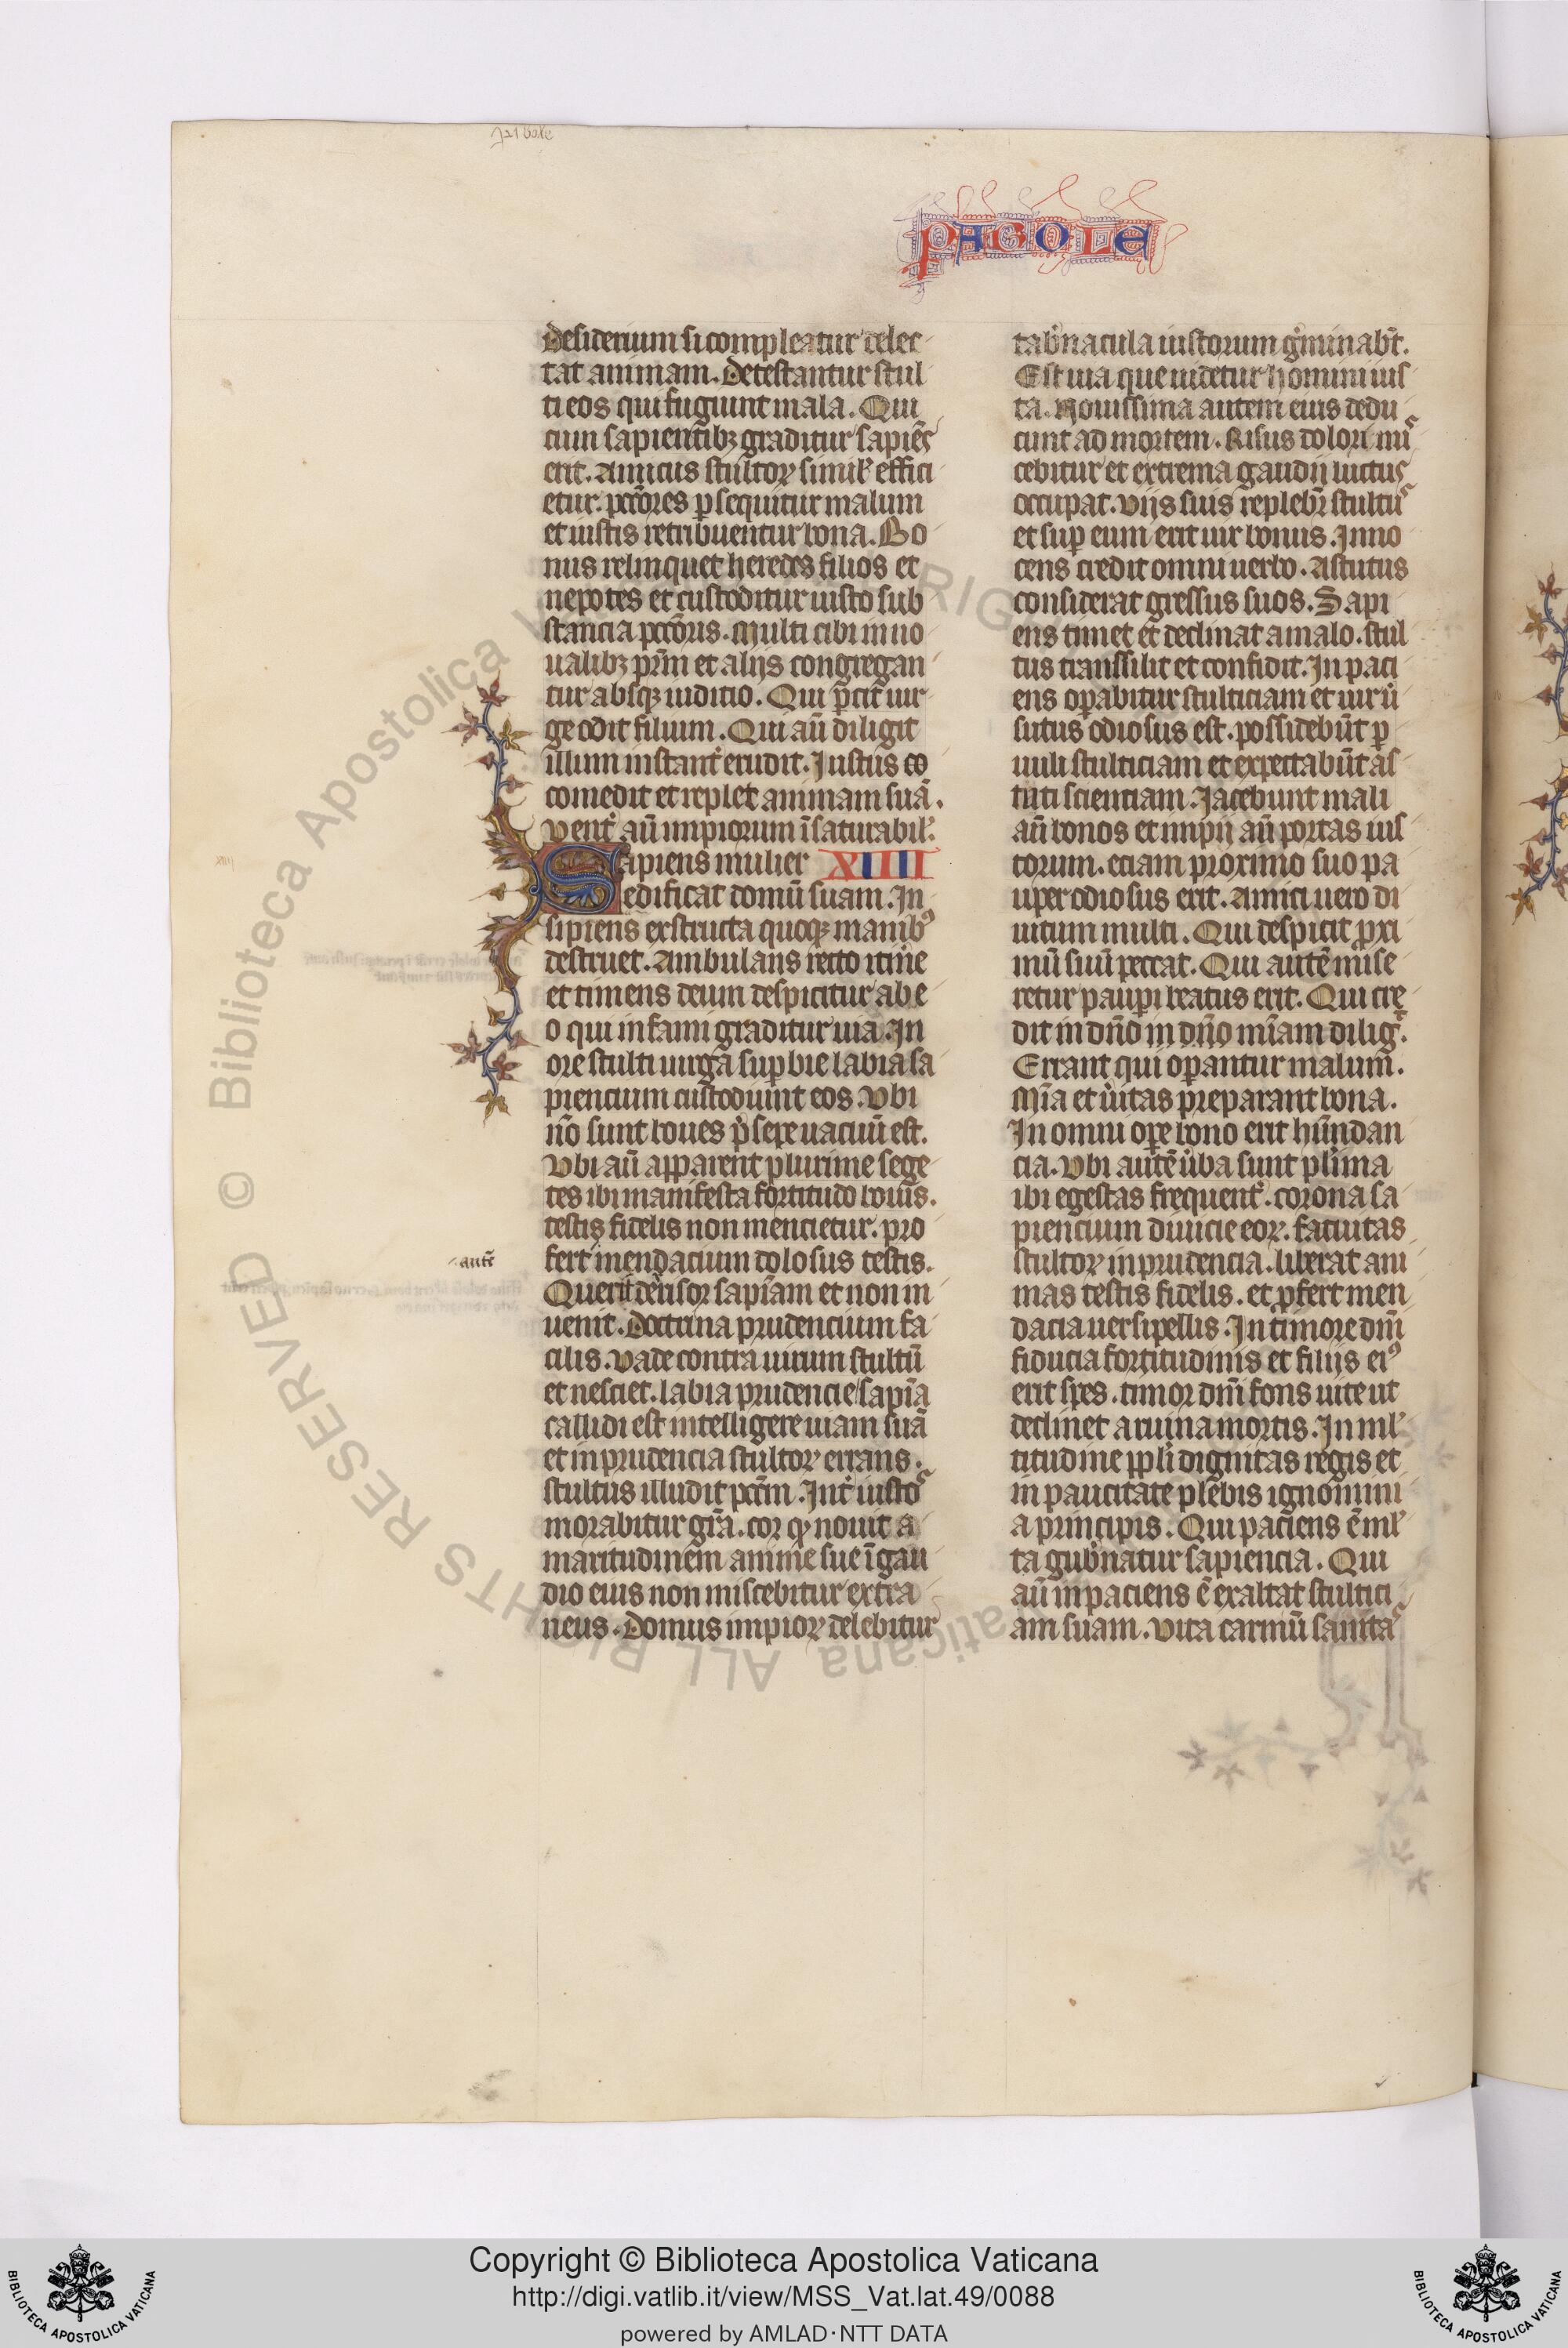 parbole
PABOLE
desiderium si compleatur delec
tat animam. Detestantur stul
ti eos qui fugiunt mala. Qui
cum sapientibꝫ graditur sapiēs
erit. Amicus stultoꝝ simil̕ effici
etur. pctōres ꝑsequitur malum
et iustis retribuentur bona. Bo
nus relinquet heredes filios et
nepotes et custoditur iusto sub
stancia pctōris. Multi cibi in no
ualibꝫ pr̄m et alijs congregan
tur absqꝫ iuditio. Qui ꝑcit uir
ge odit filium. Qui aū diligit
illum instant̕ erudit. Justus co
comedit et replet animam suā.
vent̕ aū impiorum īsaturabil̕.
Sapiens mulier XIIII
edificat domū suam. In
sipiens exstructa quoqꝫ manibꝰ
destruet. Ambulans recto itin̕e
et timens deum despicitur ab e
o qui infami graditur uia. In
ore stulti uirga suꝑbie labia sa
piencium custodiunt eos. Vbi
nō sunt boues p̄sepe uacuū est.
Vbi aū apparent plurime sege
tes ibi manifesta fortitudo bouis.
testis fidelis non mencietur. pro
fert mendacium dolosus testis.
autē
Querit derisor sapīam et non in
uenit. Doctrina prudencium fa
cilis. vade contra uirum stultū
et nesciet. labia prudencie sapīa
callidi est intelligere uiam suā
et inprudencia stultoꝝ errans.
stultus illudit pctm̄. Int̕ iustos
morabitur gr̄a. cor qͥ nouit a
maritudinem anime sue ī gau
dio eius non miscebitur extra
neus. Domus impioꝝ delebitur
tab̕nacula iustorum g̕minabt̄.
Est uia que uidetur homini ius
ta. Nouissima autem eius dedu
cunt ad mortem. Risus dolori mis
cebitur et extrema gaudij luctus
occupat. Vijs suis replebr̄ stultus
et suꝑ eum erit uir bonus. Inno
cens credit omni uerbo. Astutus
considerat gressus suos. Sapi
ens timet et declinat a malo. stul
tus transsilit et confidit. In paci
ens oꝑabitur stulticiam et uir u̕
sutus odiosus est. possidebūt ꝑ
uuli stulticiam et expectabūt as
tuti scientiam. Jacebunt mali
aū bonos et impij aū portas ius
torum. etiam proximo suo pa
uper odiosus erit. Amici uero di
uitum multi. Qui despicit ꝓxi
mū suū peccat. Qui autē mise
retur pauꝑi beatus erit. Qui cre
dit in dn̄o in dn̄o mīam dilig̕.
Errant qui oꝑantur malum.
Mīa et u̕itas preparant bona.
In omni oꝑe bono erit hūndan
cia. Vbi autē u̕ba sunt pl̕ima
ibi egestas frequent̕. corona sa
piencium diuicie eoꝝ. fatuitas
stultoꝝ inprudencia. liberat ani
mas testis fidelis. et ꝓfert men
dacia uersipellis. In timore dn̄i
fiducia fortitudinis et filijs eiꝰ
erit spes. timor dn̄i fons uite ut
declinet a ruina mortis. In ml̕
titudine ppl̕i dignitas regis et
in paucitate plebis ignomini
a principis. Qui paciens ē ml̕
ta gub̕natur sapiencia. Qui
aū inpaciens ē exaltat stultici
am suam. Vita carniū sanitas
xiiii
© Biblioteca Apostolica Vaticana ALL RIGHTS RESERVED
Copyright © Biblioteca Apostolica Vaticana
http://digi.vatlib.it/view/MSS_Vat.lat.49/0088
powered by AMLAD·NTT DATA
BIBLIOTECA APOSTOLICA VATICANA
BIBLIOTECA APOSTOLICA VATICANA